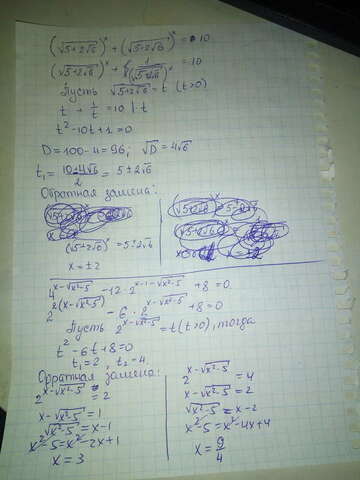 (√5+2√6)ˣ + (√5-2√6)ˣ = 10
(√5+2√6)ˣ + 1/(√5+2√6)ˣ = 10
Пусть √5+2√6 = t (t>0)
t + 1/t = 10 | t
t² - 10t + 1 = 0
D = 100 - 4 = 96; √D = 4√6
t₁ = (10 ± 4√6)/2 = 5 ± 2√6
Обратная замена:
(√5+2√6)ˣ = 5 ± 2√6
x = ±2
4^(x-√(x²-5)) - 12 · 2^(x-1-√(x²-5)) + 8 = 0
2^(2(x-√(x²-5))) - 6 · 2^(x-√(x²-5)) + 8 = 0
Пусть 2^(x-√(x²-5)) = t (t>0), тогда
t² - 6t + 8 = 0
t₁ = 2, t₂ = 4
Обратная замена:
2^(x-√(x²-5)) = 2
x - √(x²-5) = 1
√(x²-5) = x - 1
x² - 5 = x² - 2x + 1
x = 3
2^(x-√(x²-5)) = 4
x - √(x²-5) = 2
√(x²-5) = x - 2
x² - 5 = x² - 4x + 4
x = 9/4